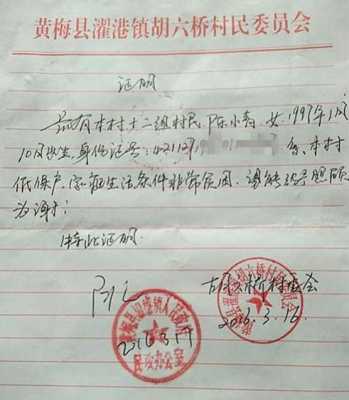 黄梅县濯港镇胡六桥村民委员会
证明
兹有本村十二组村民陈小青 女 1997年1月
10日出生, 身份证号: 42112719 01 系本村
低保户, 家庭生活条件非常困难, 请给予照顾
为谢!
特此证明
胡六桥村委会
2016.3.16
2016.3.17
民政办公室